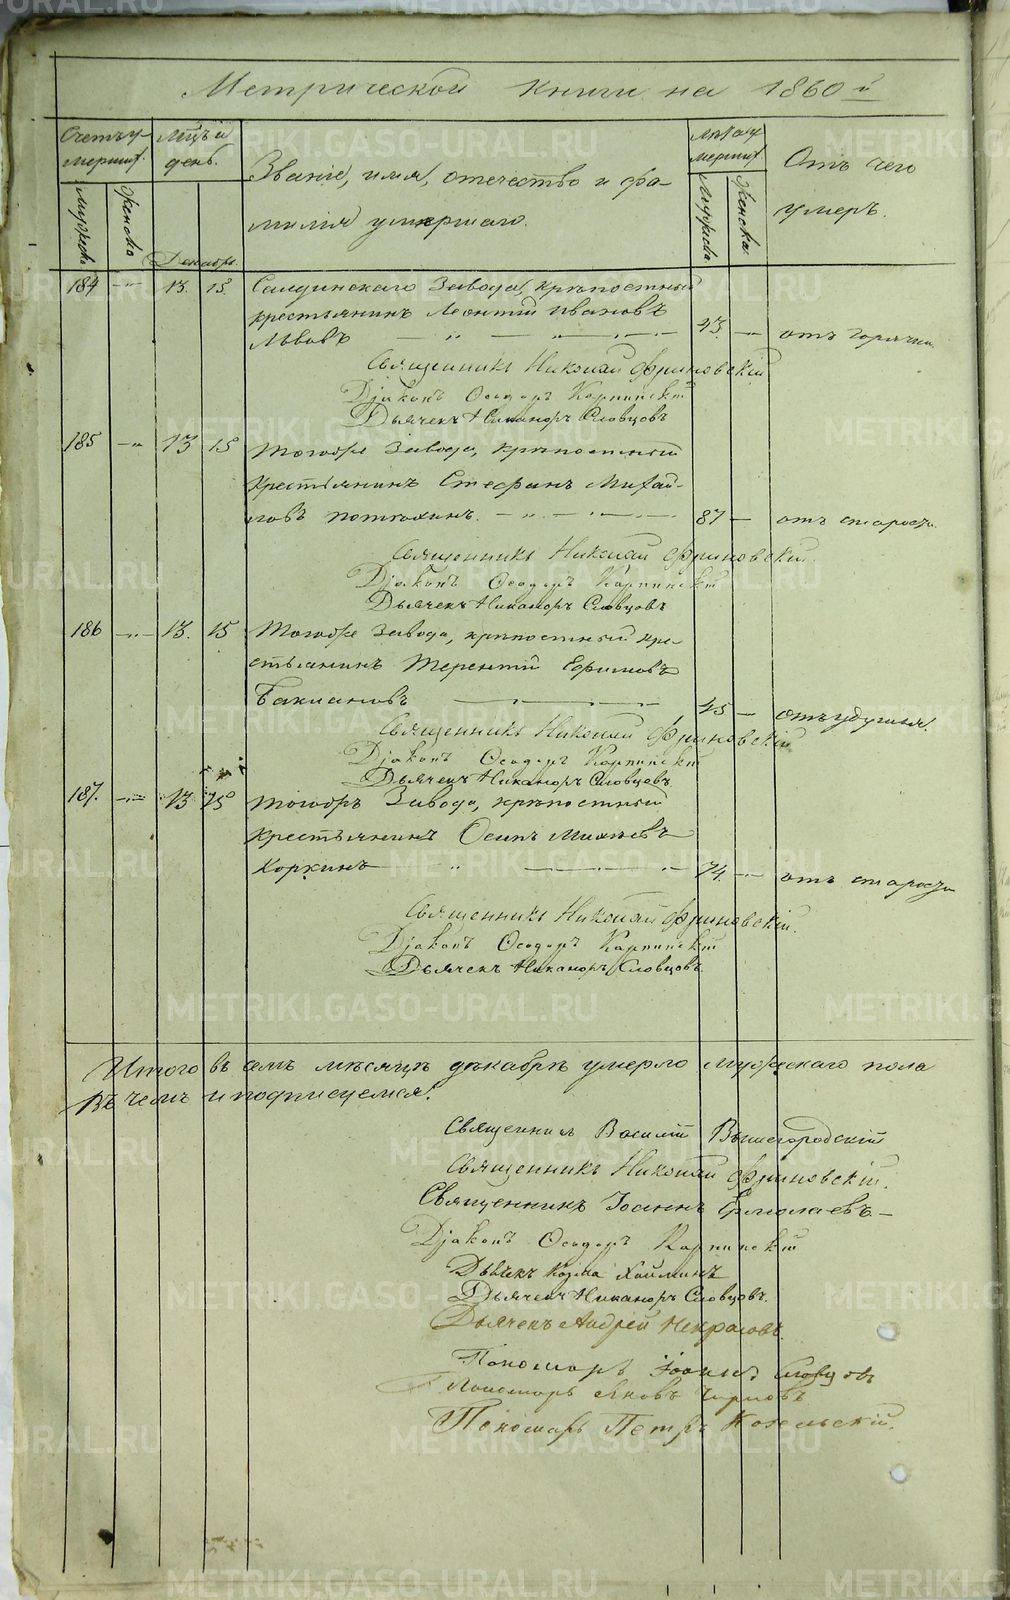 Метрической книги на 1860й
Счетъ у-
мершихъ.
Мцъ и
день.
Званіе, имя, отечество и фа-
милія умершаго.
Лѣта у-
мершихъ
Отъ чего
умеръ.
мужеска
женска
Декабрь
Мужеска
Женска
184 — " 13. 15. Салдинскаго Завода, крѣпостный
крестьянинъ Леонтій Ивановъ
Львовъ — " — " — 43. — " отъ горячки.
Священникъ Николай Фриновскій
Діаконъ Ѳеодоръ Карпинскій
Дьячекъ Никаноръ Словцовъ
185 — " 13 15 Тогожъ Завода, крѣпостный
крестьянинъ Стефанъ Михай-
ловъ — " — " — 87 — отъ старости.
Священникъ Николай Фриновскій.
Діаконъ Ѳеодоръ Карпинскій
Дьячекъ Никаноръ Словцовъ
186 — " — 13. 15 Тогожъ Завода, крѣпостный кре-
стьянинъ Терентій Ефимовъ
— " — " — 45 — отъ удушья.
Священникъ Николай Фриновскій
Діаконъ Ѳеодоръ Карпинскій
Дьячекъ Никаноръ Словцовъ
187. — " — 13 15 Тогожъ Завода, крѣпостный
крестьянинъ Осипъ
Коркинъ — " — " — 74. — " отъ старости
Священникъ Николай Фриновскій.
Діаконъ Ѳеодоръ Карпинскій
Дьячекъ Никаноръ Словцовъ
Итого въ семъ мѣсяцѣ декабрѣ умерло мужескаго пола
Въ чемъ и подписуемся.
Священникъ Василій Вышегородскій
Священникъ Николай Фриновскій.
Священникъ Іоаннъ Ермолаевъ —
Діаконъ Ѳеодоръ Карпинскій
Дьячекъ Козма
Дьячекъ Никаноръ Словцовъ.
Дьячекъ Андрей Некрасовъ
Пономарь Іоаннъ Словцовъ
Пономарь Яковъ
Пономарь Петръ Козельскій.
METRIKI.GASO-URAL.RU